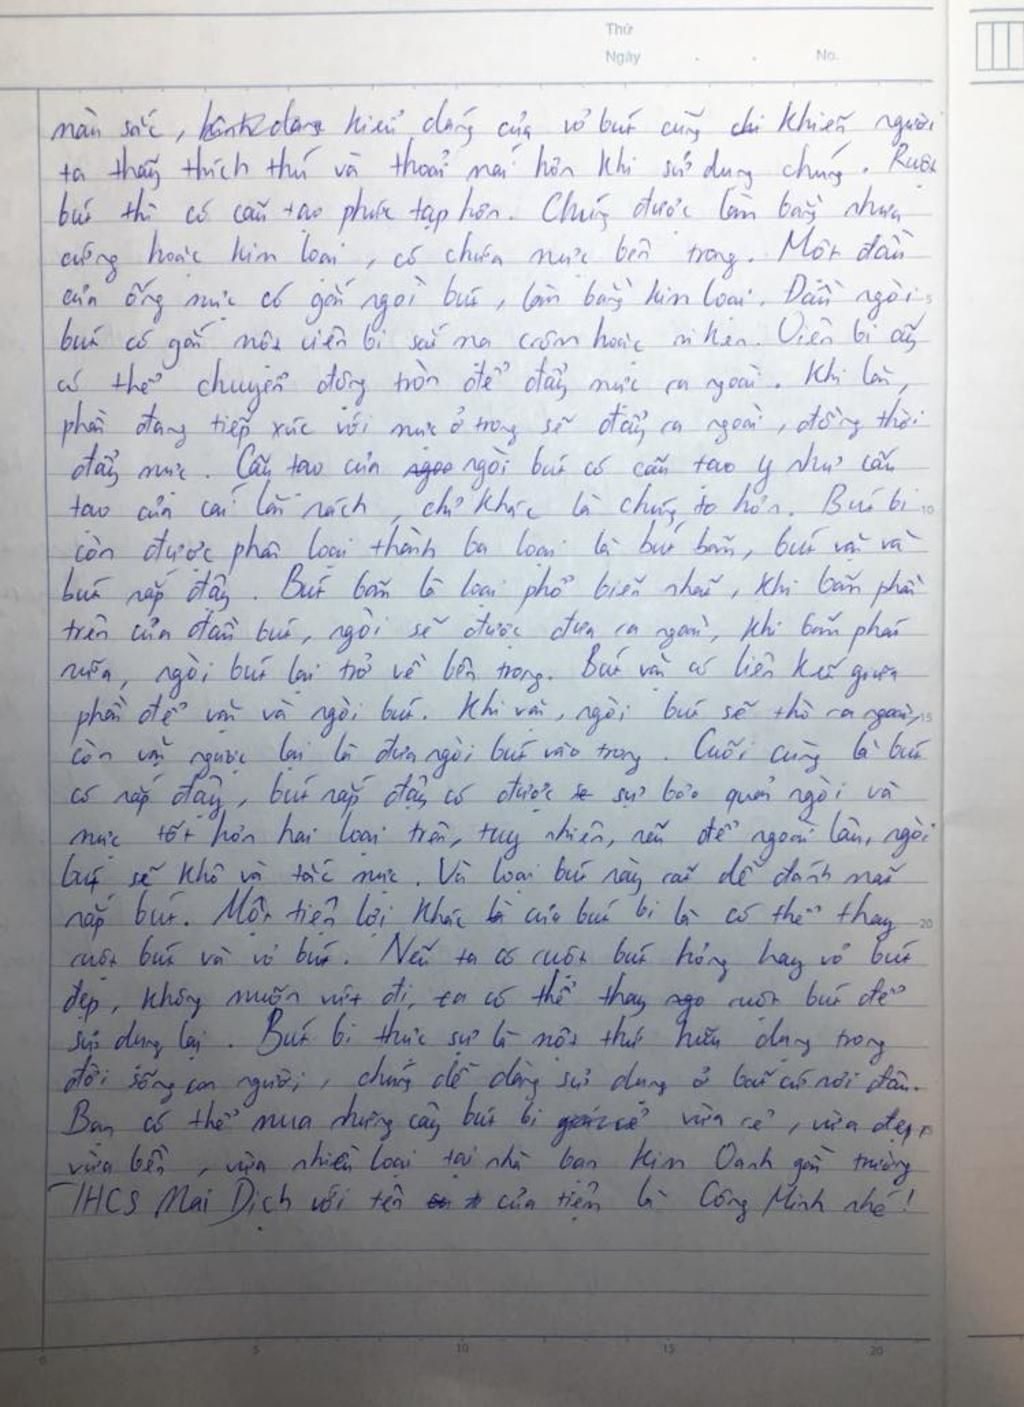 Thứ
Ngày No.
màu sắc, kiểu dáng của vỏ bút cũng chỉ khiến người
ta thấy thích thú và thoải mái hơn khi sử dụng chúng. Ruột
bút thì có cấu tạo phức tạp hơn. Chúng được làm bằng nhựa
cứng hoặc kim loại, có chứa mực bên trong. Một đầu
của ống mực có gắn ngòi bút, làm bằng kim loại. Đầu ngòi 5
bút có gắn một viên bi sắt mạ crôm hoặc niken. Viên bi ấy
có thể chuyển động tròn để đẩy mực ra ngoài. Khi lăn,
phần đang tiếp xúc với mực ở trong sẽ đẩy ra ngoài, đồng thời
đẩy mực. Cấu tạo của ngòi bút có cấu tạo y như cấu
tạo của cái lăn nách, chỉ khác là chúng to hơn. Bút bi 10
còn được phân loại thành ba loại là bút bấm, bút vặn và
bút nắp đậy. Bút bấm là loại phổ biến nhất, khi bấm phần
trên của đầu bút, ngòi sẽ được đưa ra ngoài, khi bấm phát
nữa, ngòi bút lại trở về bên trong. Bút vặn có liên kết giữa
phần để vặn và ngòi bút. Khi vặn, ngòi bút sẽ thò ra ngoài, 15
còn vặn ngược lại là đưa ngòi bút vào trong. Cuối cùng là bút
có nắp đậy, bút nắp đậy có được sự bảo quản ngòi và
mực tốt hơn hai loại trên, tuy nhiên, nếu để ngoài lâu, ngòi
bút sẽ khô và tắc mực. Và loại bút này rất dễ đánh mất
nắp bút. Một tiện lợi khác của bút bi là có thể thay 20
ruột bút và vỏ bút. Nếu ta có ruột bút hỏng hay vỏ bút
đẹp, không muốn vứt đi, ta có thể thay ruột bút để
sử dụng lại. Bút bi thực sự là một thứ hữu dụng trong
đời sống con người, chúng dễ dàng sử dụng ở bất cứ nơi đâu.
Bạn có thể mua những cây bút bi vừa rẻ, vừa đẹp,
vừa bền, vừa nhiều loại tại nhà bạn Kim Oanh gần trường
THCS Mai Dịch với tên của tiệm là Công Minh nhé!
0 5 10 15 20